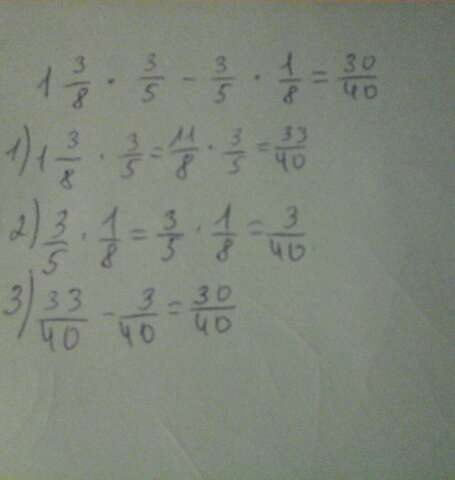 1 3/8 · 3/5 - 3/5 · 1/8 = 30/40
1) 1 3/8 · 3/5 = 11/8 · 3/5 = 33/40
2) 3/5 · 1/8 = 3/5 · 1/8 = 3/40
3) 33/40 - 3/40 = 30/40